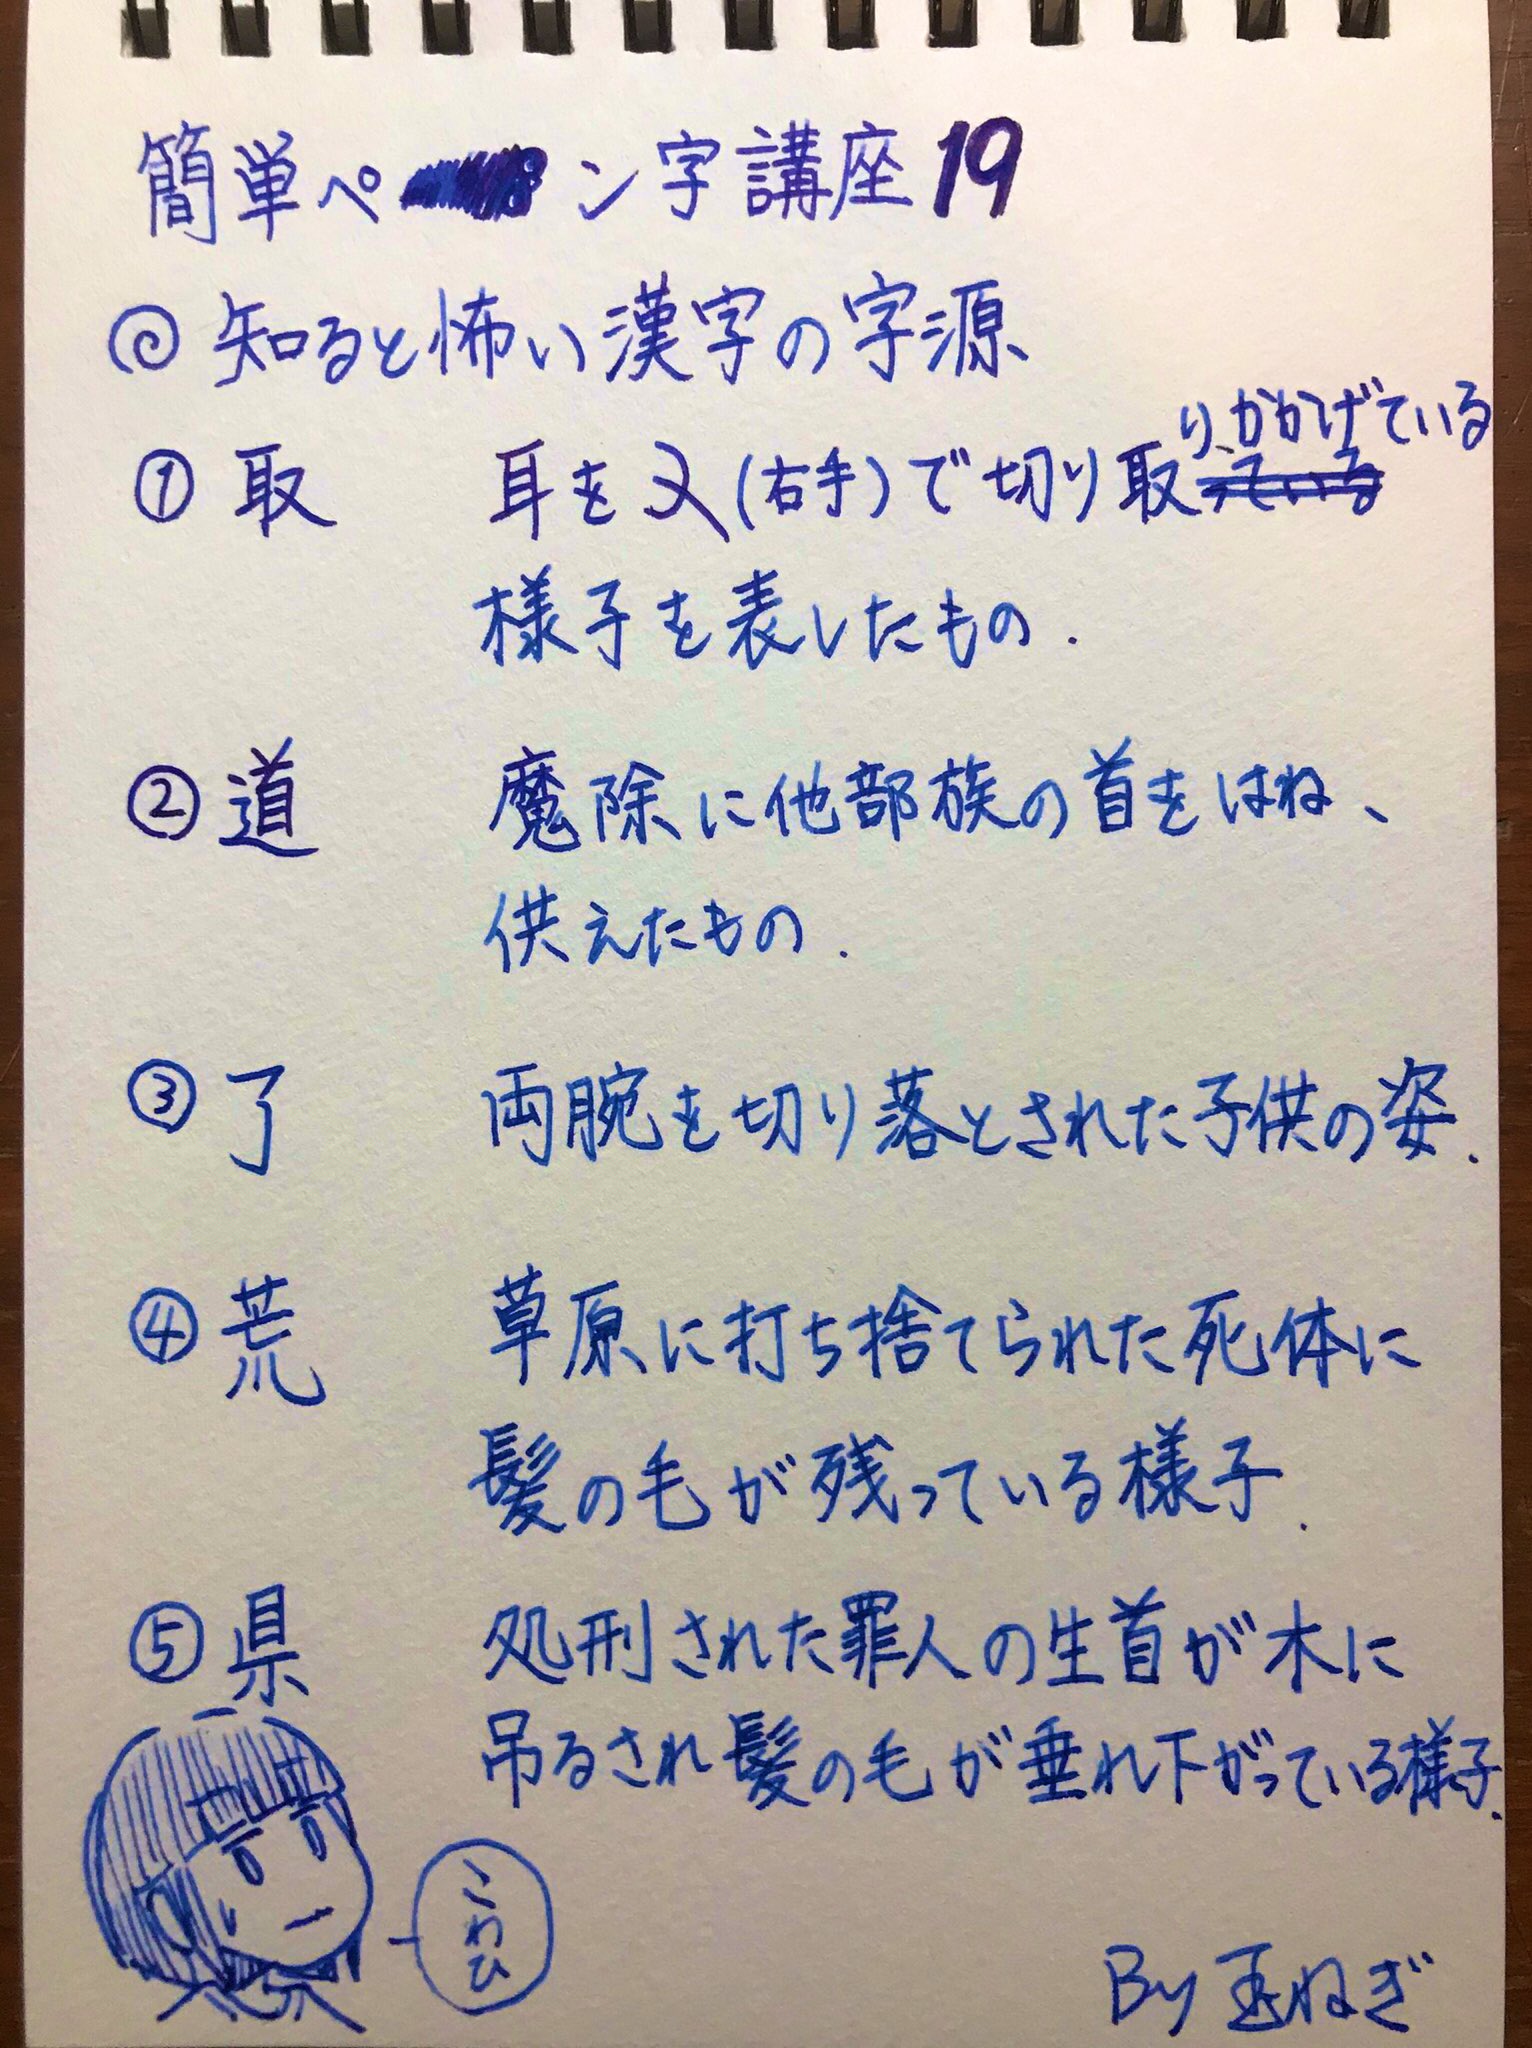 簡単ペン字講座19
◎知ると怖い漢字の字源
①取 耳を又(右手)で切り取りかかげている
様子を表したもの.
②道 魔除に他部族の首をはね、
供えたもの.
③了 両腕を切り落とされた子供の姿.
④荒 草原に打ち捨てられた死体に
髪の毛が残っている様子.
⑤県 処刑された罪人の生首が木に
吊るされ髪の毛が垂れ下がっている様子.
こわひ
By 玉ねぎ